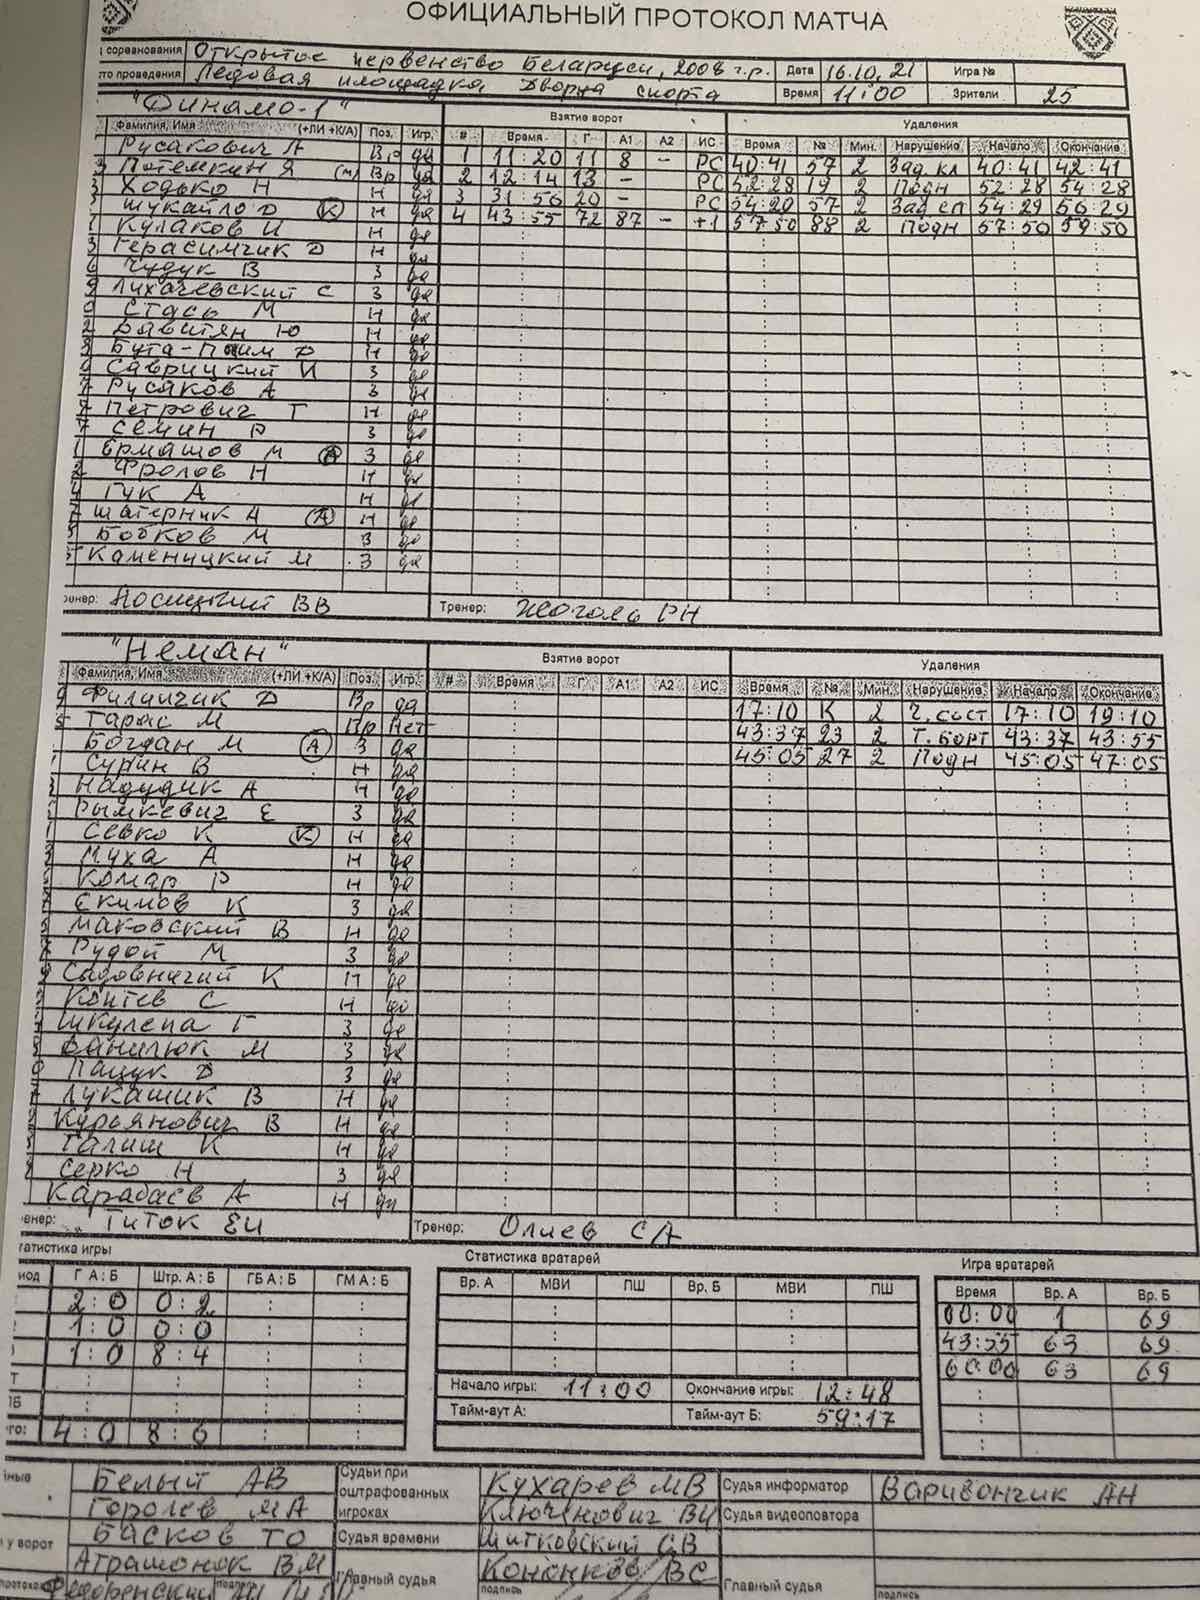 ОФИЦИАЛЬНЫЙ ПРОТОКОЛ МАТЧА
соревнования Открытое первенство Беларуси, 2008 г.р. Дата 16.10.21 Игра №
проведения Ледовая площадка Дворца спорта Время 11:00 Зрители 25
"Динамо-1" Взятие ворот Удаления
Фамилия, Имя (+ЛИ +К/А) Поз. Игр. # Время Г А1 А2 ИС Время № Мин. Нарушение Начало Окончание
Русакович А Вр да 1 11:20 11 8 - РС 40:41 57 2 Зад. кл 40:41 42:41
Потемкин Я (м) Вр да 2 12:14 13 - РС 52:28 19 2 Подн 52:28 54:28
Ходько Н Н да 3 31:56 20 - РС 54:20 57 2 Зад сп 54:29 56:29
Шукайло D (К) Н да 4 43:55 72 87 - +1 57:50 88 2 Подн 57:50 59:50
Кулаков И Н да
Герасимчик D Н да
Чудук В З да
Лихачевский С З да
Стась М Н да
Давитян Ю Н да
Н да
Саврицкий И З да
Русаков А З да
Петрович Т Н да
Семин Р З да
Ермашов М (А) З да
Фролов Н Н да
Гук А Н да
Шатерник А (А) Н да
Бобков М З да
Каменицкий М З да
Тренер: ВВ Тренер: Жоголь РН
"Неман" Взятие ворот Удаления
Фамилия, Имя (+ЛИ +К/А) Поз. Игр. # Время Г А1 А2 ИС Время № Мин. Нарушение Начало Окончание
Филипчик D Вр да 17:10 К 2 Ч. сост 17:10 19:10
Тарас М Вр Нет 43:37 23 2 Т. Борт 43:37 43:55
Богдан М (А) З да 45:05 27 2 Подн 45:05 47:05
Сурин В Н да
Надудик А Н да
Рымкевич Е З да
Севко К (К) Н да
Муха А Н да
Комар Р Н да
Екимов К З да
Маковский В Н да
Рудой М З да
Садовничий К Н да
Коптев С Н да
Шкулепа Г З да
Данилюк М З да
Пацук D З да
Лукашик В Н да
Курьянович В Н да
Галиш К Н да
Серко Н З да
Карабаев А Н да
Тренер: Титок ЕИ Тренер: Олиев СА
Статистика игры Статистика вратарей Игра вратарей
Г А : Б Штр. А : Б ГБ А : Б ГМ А : Б Вр. А МВИ ПШ Вр. Б МВИ ПШ Время Вр. А Вр. Б
2:0 0:2 00:00 1 69
1:0 0:0 43:55 63 69
1:0 8:4 60:00 63 69
Начало игры: 11:00 Окончание игры: 12:48
Тайм-аут А: Тайм-аут Б: 59:17
4:0 8:6
Белый АВ Судьи при оштрафованных игроках Кухарев МВ Судья информатор Варивончик АН
Горолев МА Ключенович ВИ Судья видеоповтора
у ворот Басков ТО Судья времени Шитковский СВ
Атрашонок ВМ Главный судья Кононков ВС Главный судья
подпись подпись подпись